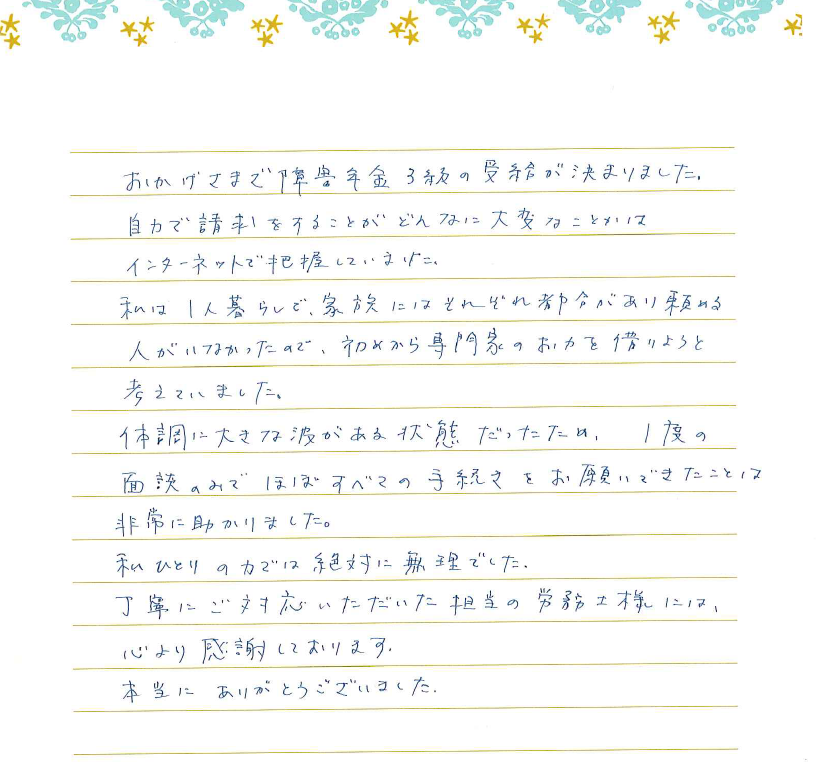 おかげさまで障害年金3級の受給が決まりました。
自力で請求をすることがどんなに大変なことかは
インターネットで把握していました。
私は1人暮らしで、家族にはそれぞれ都合があり頼める
人がいなかったので、初めから専門家のお力を借りようと
考えていました。
体調に大きな波がある状態だったため、1度の
面談のみでほぼすべての手続きをお願いできたことは
非常に助かりました。
私ひとりの力では絶対に無理でした。
丁寧にご対応いただいた担当の労務士様には、
心より感謝しております。
本当にありがとうございました。